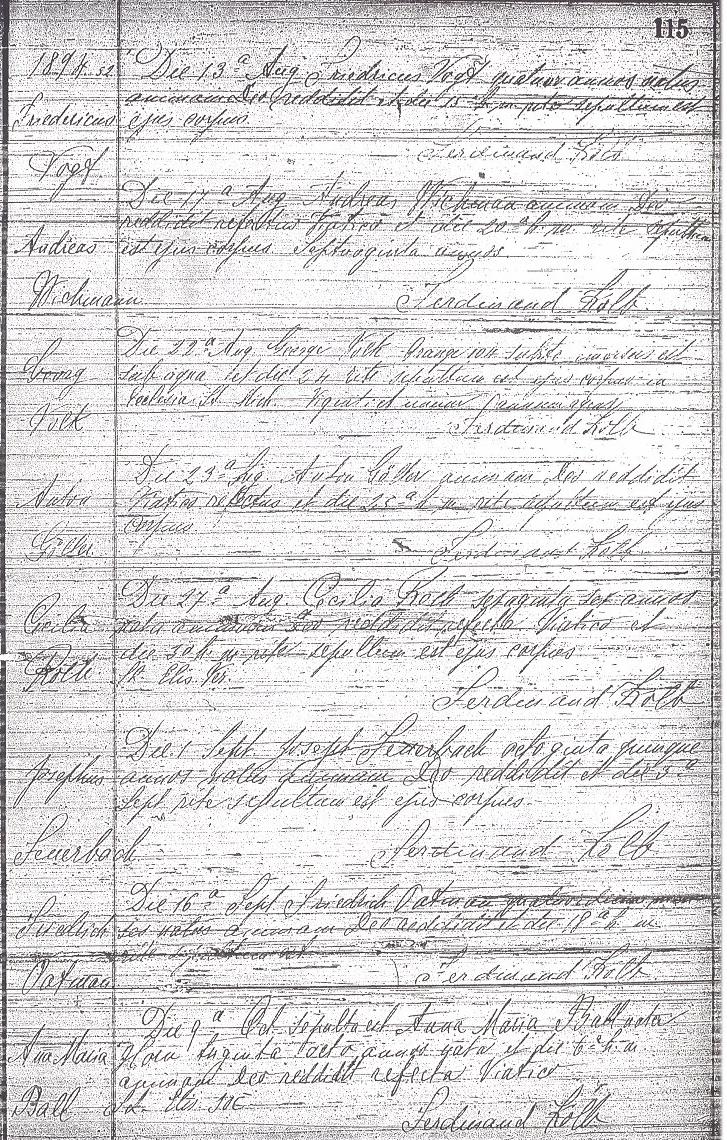 115
1894. 52 Die 13a Aug Friedricus Vogt quatuor annos natus
animam Deo reddidit et die 15 h. m rite sepultum est
Fredericus ejus corpus
Ferdinand Kolb
Vogt
Die 17a Aug Andreas Wichman animam Deo
reddidit refectus Viatico et die 20a h. m. rite sepultum
Andreas est ejus corpus. Septuaginta annos
Wichmann Ferdinand Kolb
Die 22a Aug George Volk Orange subito mersus est
Georg sub aqua et die 24 rite sepultum est ejus corpus in
ecclesia St. Mich. Viginti et unum annum agens
Volk Ferdinand Kolb
Die 23a Aug Anton Göller animam Deo reddidit
Anton Viatico refectus et die 25a h m rite sepultum est ejus
corpus
Göller Ferdinand Kolb
Die 27a Aug. Cecilia septuginta sex annos
Cecilia nata animam Deo reddidit refecta Viatico et
die 30 h m rite sepultum est ejus corpus
Elis.
Ferdinand Kolb
Die 1 Sept. Joseph Feuerbach octoginta quinque
Josephus annos natus animam Deo reddidit et die 3a
Sept rite sepultum est ejus corpus.
Feuerbach Ferdinand Kolb
Die 16a Sept Friedrich Oatman quatuordecim
Friedrich natus animam Deo reddidit et die 18a h. m
rite sepultum est
Oatman Ferdinand Kolb
Die 9a Oct. sepulta est Anna Maria Ball nata
Ana Maria triginta octo annos nata et die 6a h. m
animam Deo reddidit refecta Viatico
Ball Elis.
Ferdinand Kolb